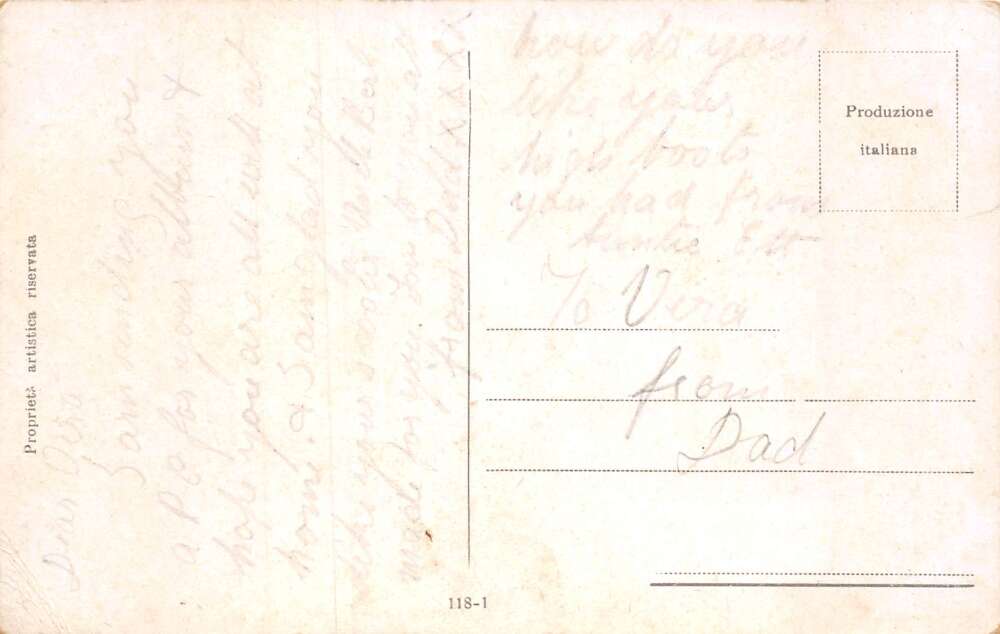 Dear Vera
I am sending you
a P C for your album &
hope you are all well at
home. & I am glad you
like your socks
made for you
from Dad X X X X
how do you
like your
high boots
you had from
Auntie
To Vera
from
Dad
Produzione
italiana
Proprietà artistica riservata
118-1